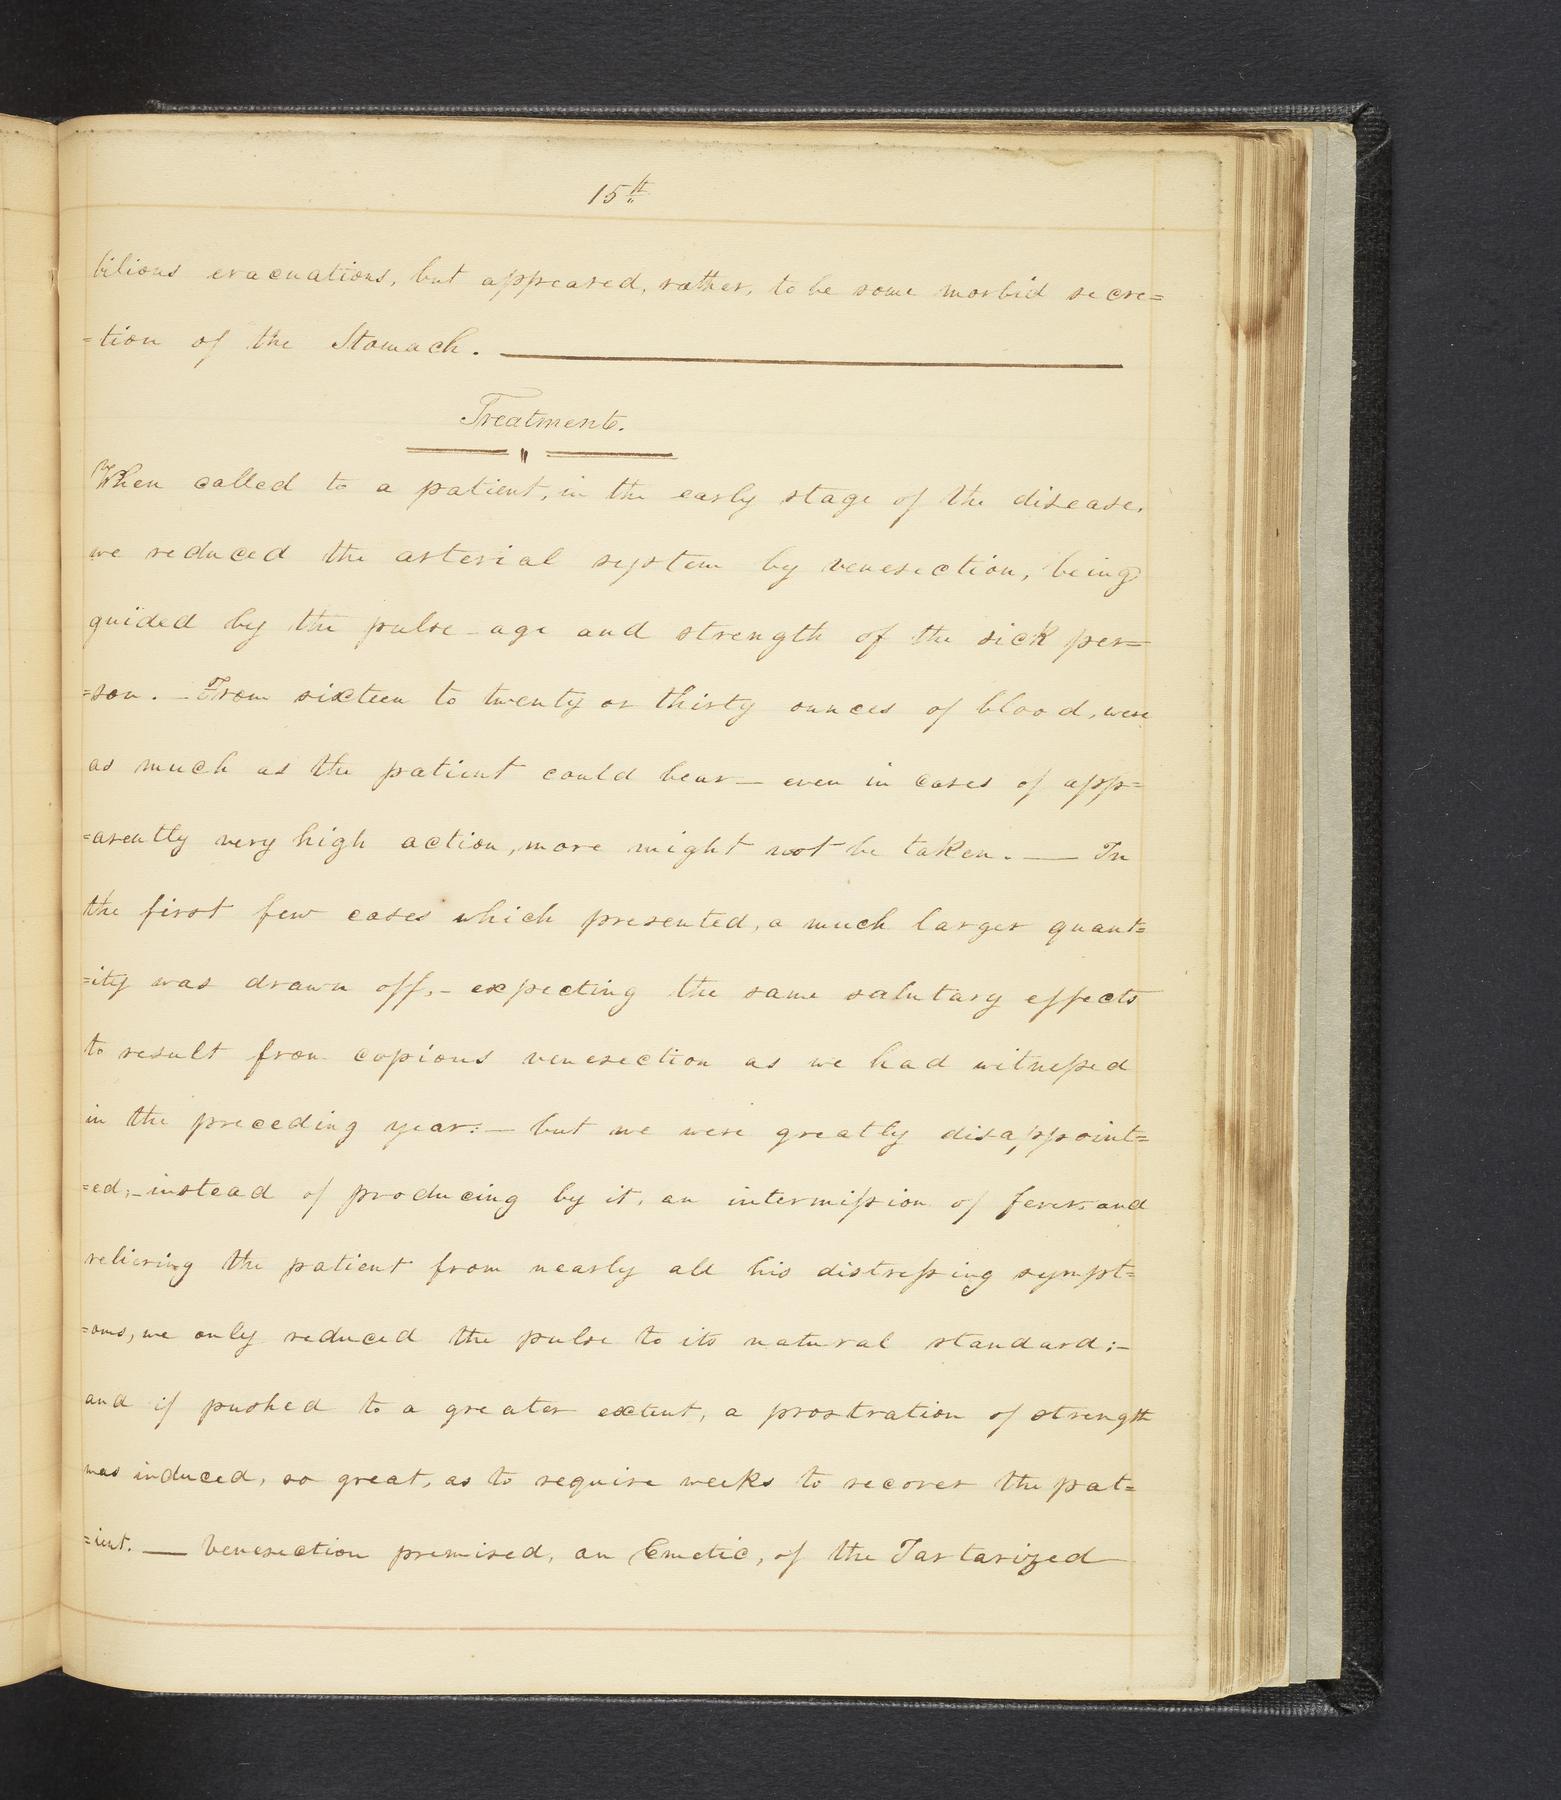 15th
bilious evacuations, but appeared, rather, to be some morbid secre=
=tion of the Stomach. —
Treatment.
When called to a patient, in the early stage of the disease,
we reduced the arterial system by venesection, being
guided by the pulse - age and strength of the sick per=
=son. - From sixteen to twenty or thirty ounces of blood, were
as much as the patient could bear — even in cases of app=
=arently very high action, more might not be taken. — In
the first few cases which presented, a much larger quant=
=ity was drawn off, - expecting the same salutary effects
to result from copious venesection as we had witnessed
in the preceding year: — but we were greatly disappoint=
=ed; - instead of producing by it, an intermission of fever, and
relieving the patient from nearly all his distressing sympt=
=oms, we only reduced the pulse to its natural standard; -
and if pushed to a greater extent, a prostration of strength
was induced, so great, as to require weeks to recover the pat=
=ient. — Venesection premised, an Emetic, of the Tartarized